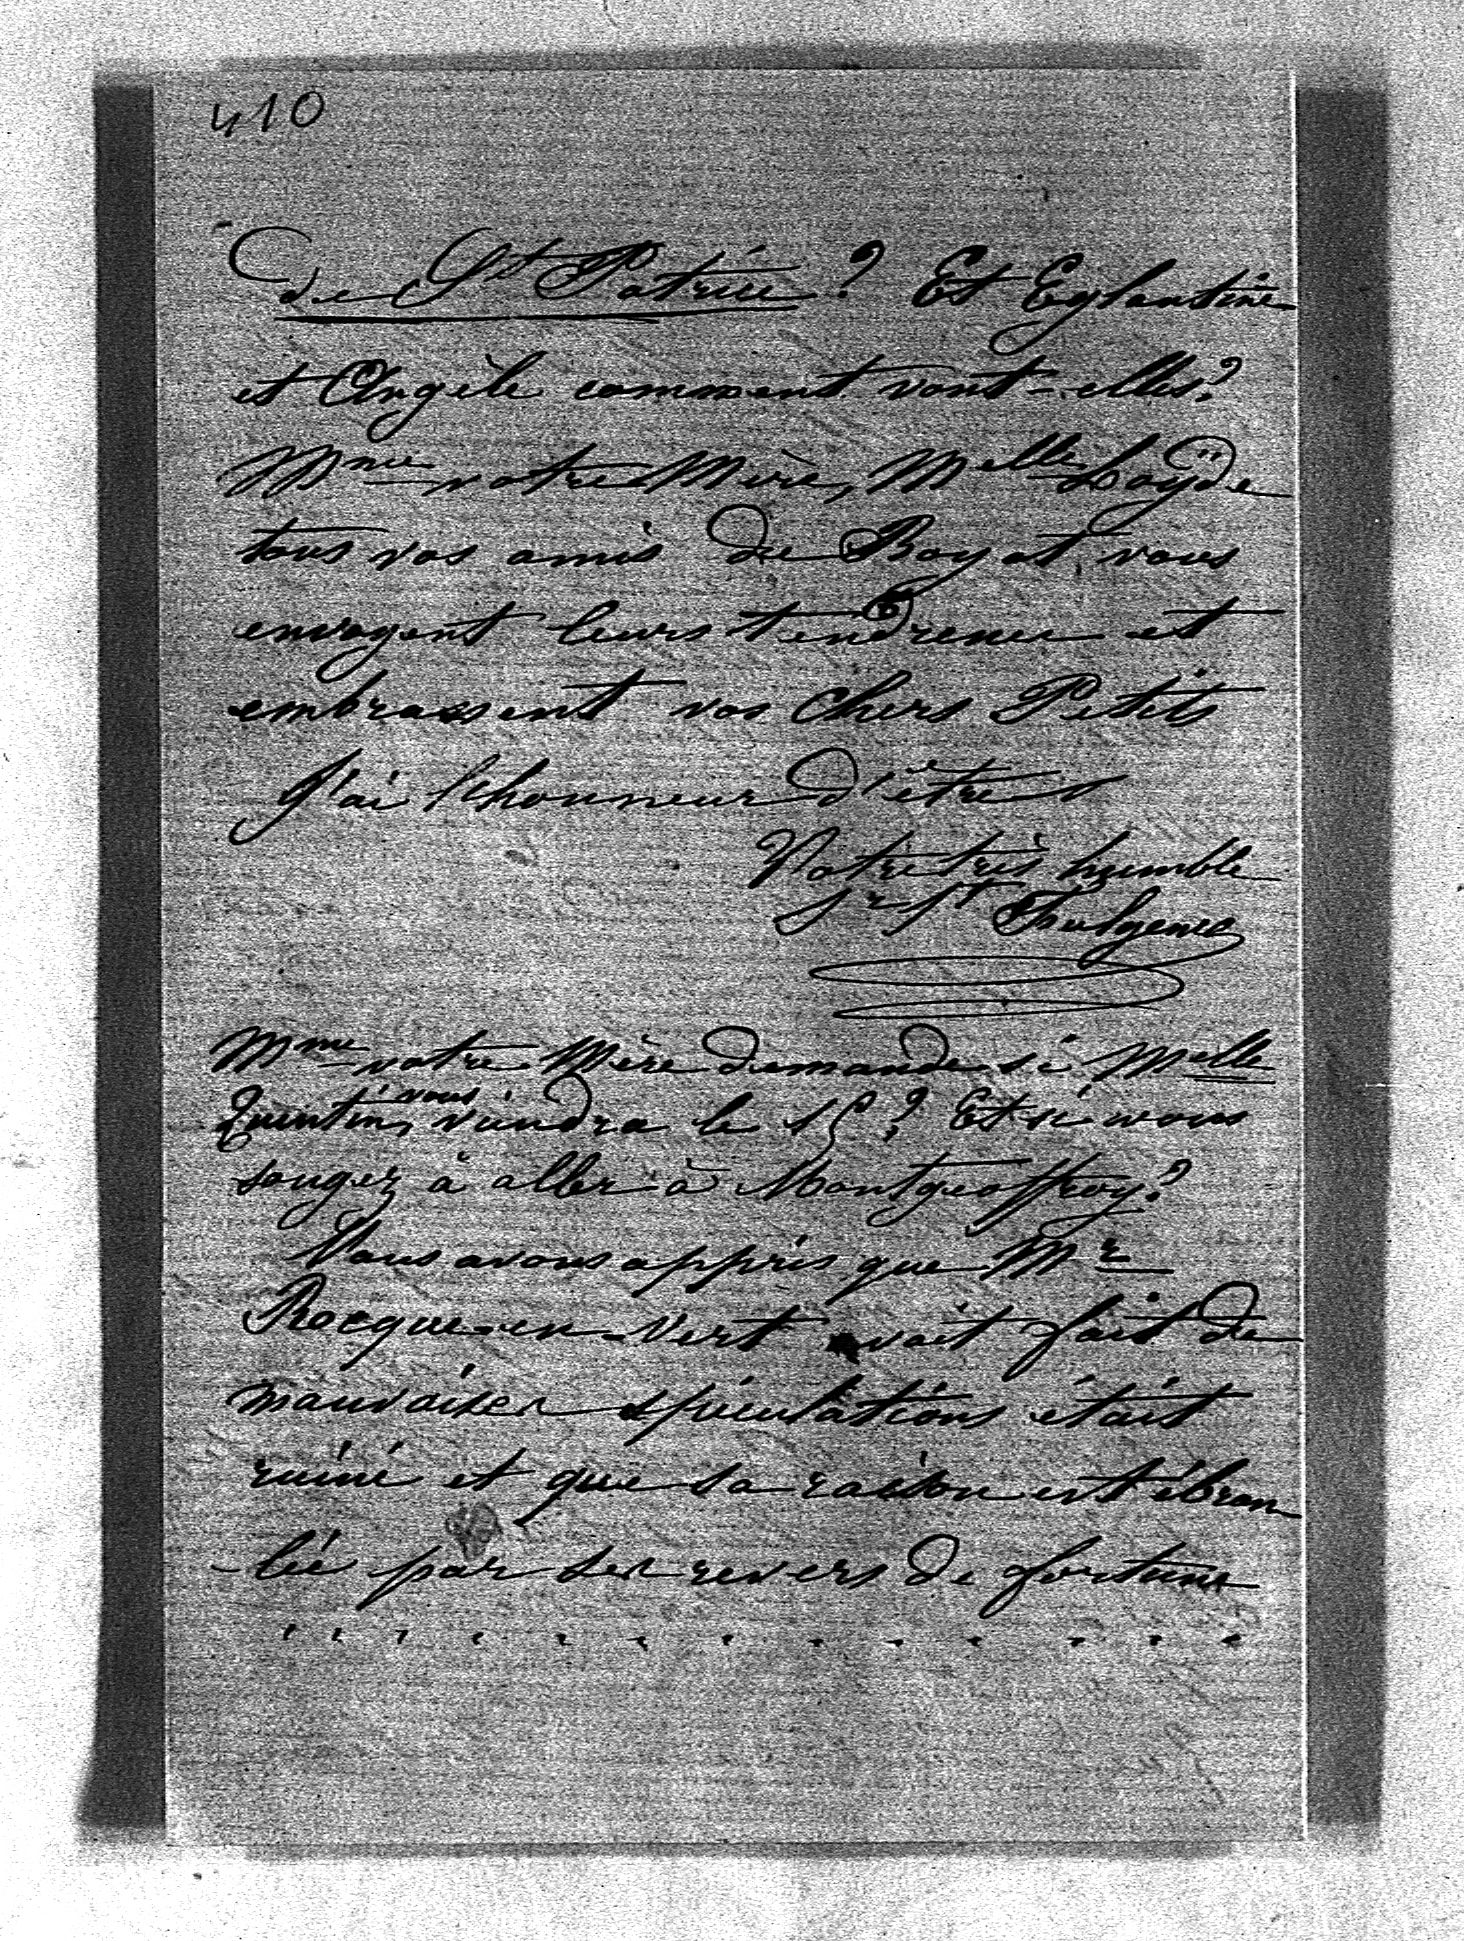 410
de St Patrice ? Et Eglantine
et Angèle comment vont-elles ?
Mme votre Mère, Melle
tous vos amis du vous
envoyent leurs tendresses et
embrassent vos Chers Petits
J'ai l'honneur d'être
Votre très humble
Sr St Fhulgence
Mme votre Mère demande si Melle
Quintin, vous viendra le 15 ? Et si vous
songez à aller à Montgeoffroy ?
Nous avons appris que Mr
Rocque-en-Vert avait fait de
mauvaises spéculations était
ruiné et que sa raison est ébran
-lée par ses revers de fortune
. . . . . . . . . . . . .